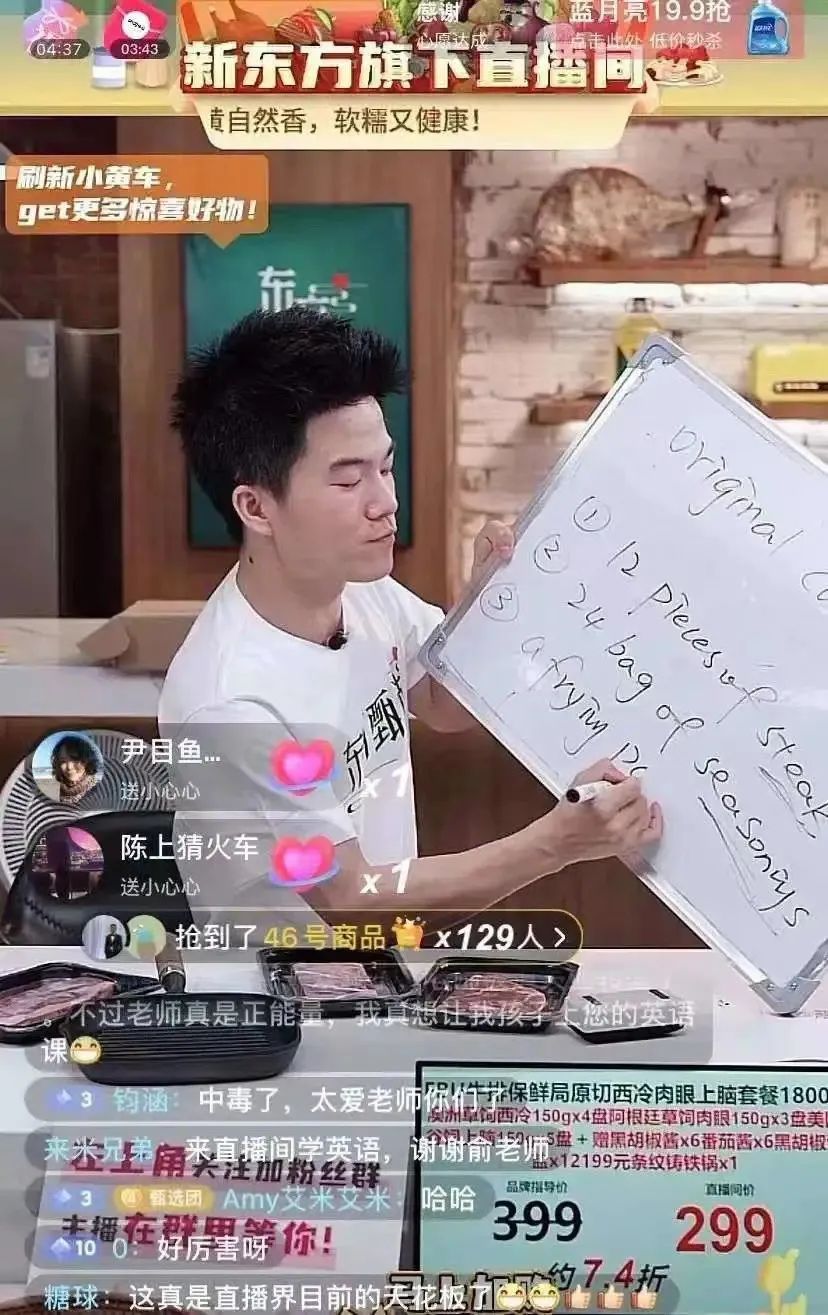 04:37
03:43
感谢
心愿达成
蓝月亮19.9抢
点击此处 低价秒杀
新东方旗下直播间
黄自然香，软糯又健康！
刷新小黄车，
get更多惊喜好物！
东方
original
① 12 pieces of steak
② 24 bag of seasonings
③ a frying pa
东方甄
尹目鱼...
送小心心
x 1
陈上猜火车
送小心心
x 1
抢到了 46号商品 x129人 >
。不过老师真是正能量，我真想让我孩子上您的英语
课😁
3 钧涵：中毒了，太爱老师你们了
来米兄弟：来直播间学英语，谢谢俞老师
3 甄选团 Amy艾米艾米：哈哈
10 0：好厉害呀
糖球：这真是直播界目前的天花板了😁😁👍👍👍👍
左上角关注加粉丝群
主播在群里等你！
牛排保鲜局原切西冷肉眼上脑套餐1800
澳洲草饲西冷150gx4盘阿根廷草饲肉眼150gx3盘美
5盘 + 赠黑胡椒酱x6番茄酱x6黑胡椒
x12199元条纹铸铁锅x1
品牌指导价
399
直播间价
299
约7.4折